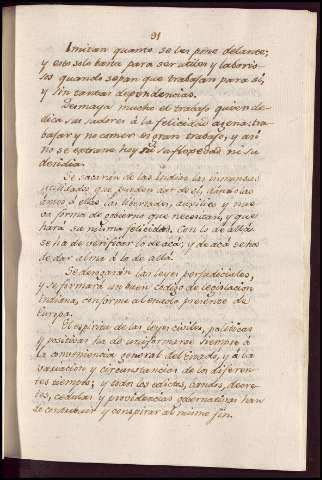 31
Imitan quanto se les pone delante;
y esto solo basta para ser utiles y laborio-
sos quando sepan que trabajan para sí,
y sin tantas dependencias.
Desmaya mucho el trabajo quien de-
dica sus sudores á la felicidad agena: tra-
bajar y no comer es gran trabajo, y así
no se estrañe hoy su floxedad ni su
desidia.
Se sacarán de las Indias las inmensas
utilidades que pueden dar de sí, dandolas
antes á ellas las libertades, auxilios y nue-
va forma de gobierno que necesitan, y que
hará su misma felicidad. Con lo de allá
se ha de verificar lo de acá; y de acá se ha
de dar alma á lo de allá.
Se derogarán las leyes perjudiciales,
y se firmará un buen código de legislacion
Indiana, conforme al estado presente de
Europa.
El espiritu de las leyes civiles, politicas
y positivas ha de uniformarse siempre á
la conveniencia general del Estado, y á la
variacion y circunstancias de los diferen-
tes tiempos; y todos los edictos, bandos, decre-
tos, cédulas y providencias gubernativas han
de contribuir y conspirar al mismo fin.